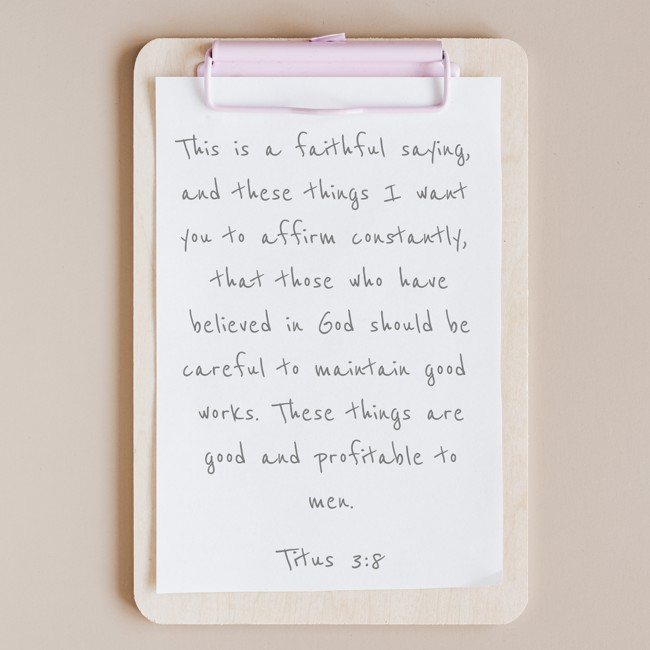 This is a faithful saying,
and these things I want
you to affirm constantly,
that those who have
believed in God should be
careful to maintain good
works. These things are
good and profitable to
men.
Titus 3:8